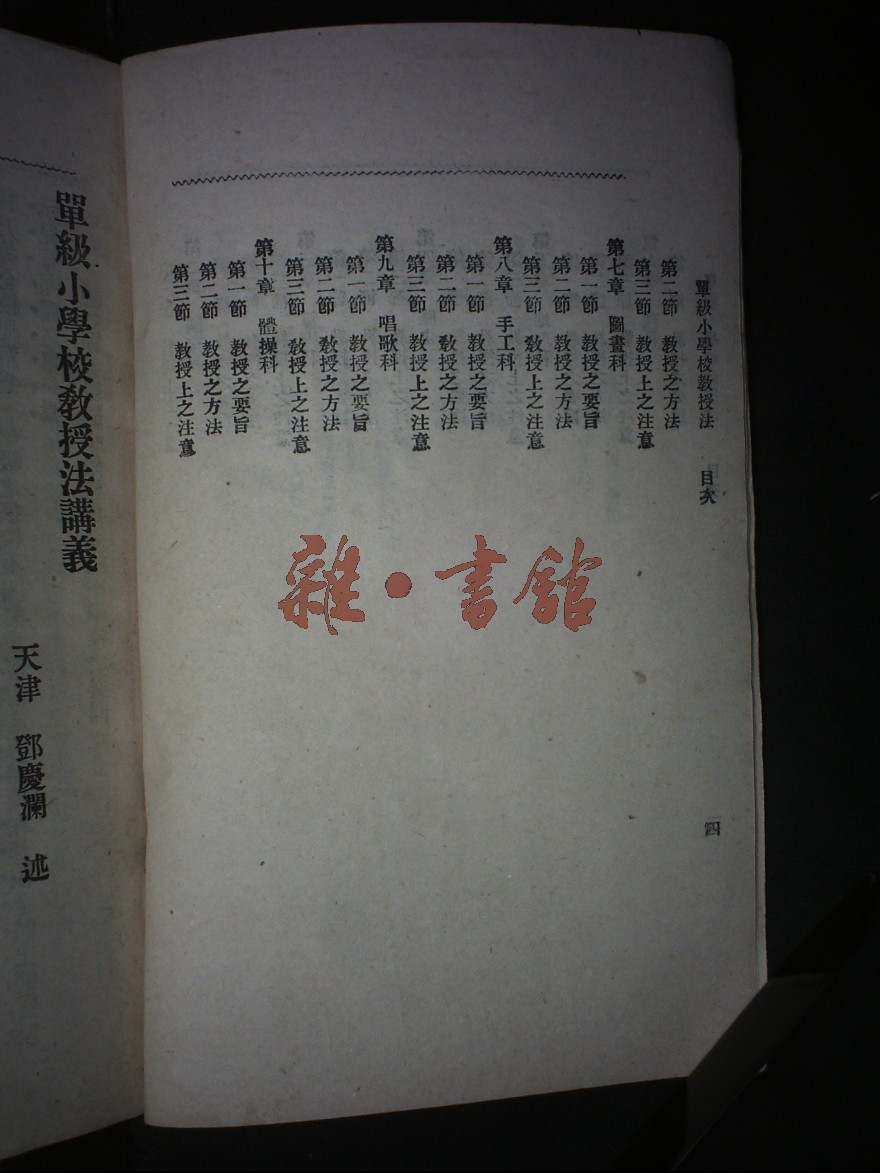 單級小學校教授法 目次
第二節 教授之方法
第三節 教授上之注意
第七章 圖畫科
第一節 教授之要旨
第二節 教授之方法
第三節 教授上之注意
第八章 手工科
第一節 教授之要旨
第二節 教授之方法
第三節 教授上之注意
第九章 唱歌科
第一節 教授之要旨
第二節 教授之方法
第三節 教授上之注意
第十章 體操科
第一節 教授之要旨
第二節 教授之方法
第三節 教授上之注意
四
雜·書館
單級小學校教授法講義
天津 鄧慶瀾 述